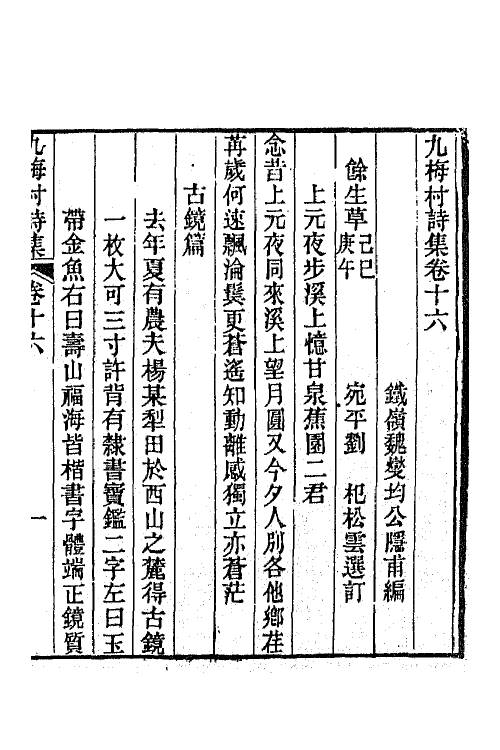 九梅村詩集卷十六
鐵嶺魏燮均公隱甫編
餘生草 己巳 庚午 宛平劉 杞松雲選訂
上元夜步溪上憶甘泉蕉園二君
念昔上元夜同來溪上望月圓又今夕人別各他鄉荏
苒歲何速飄淪鬢更蒼遙知動離感獨立亦蒼茫
古鏡篇
去年夏有農夫楊某犁田於西山之麓得古鏡
一枚大可三寸許背有隸書寶鑑二字左曰玉
帶金魚右曰壽山福海皆楷書字體端正鏡質
九梅村詩集 卷十六 一